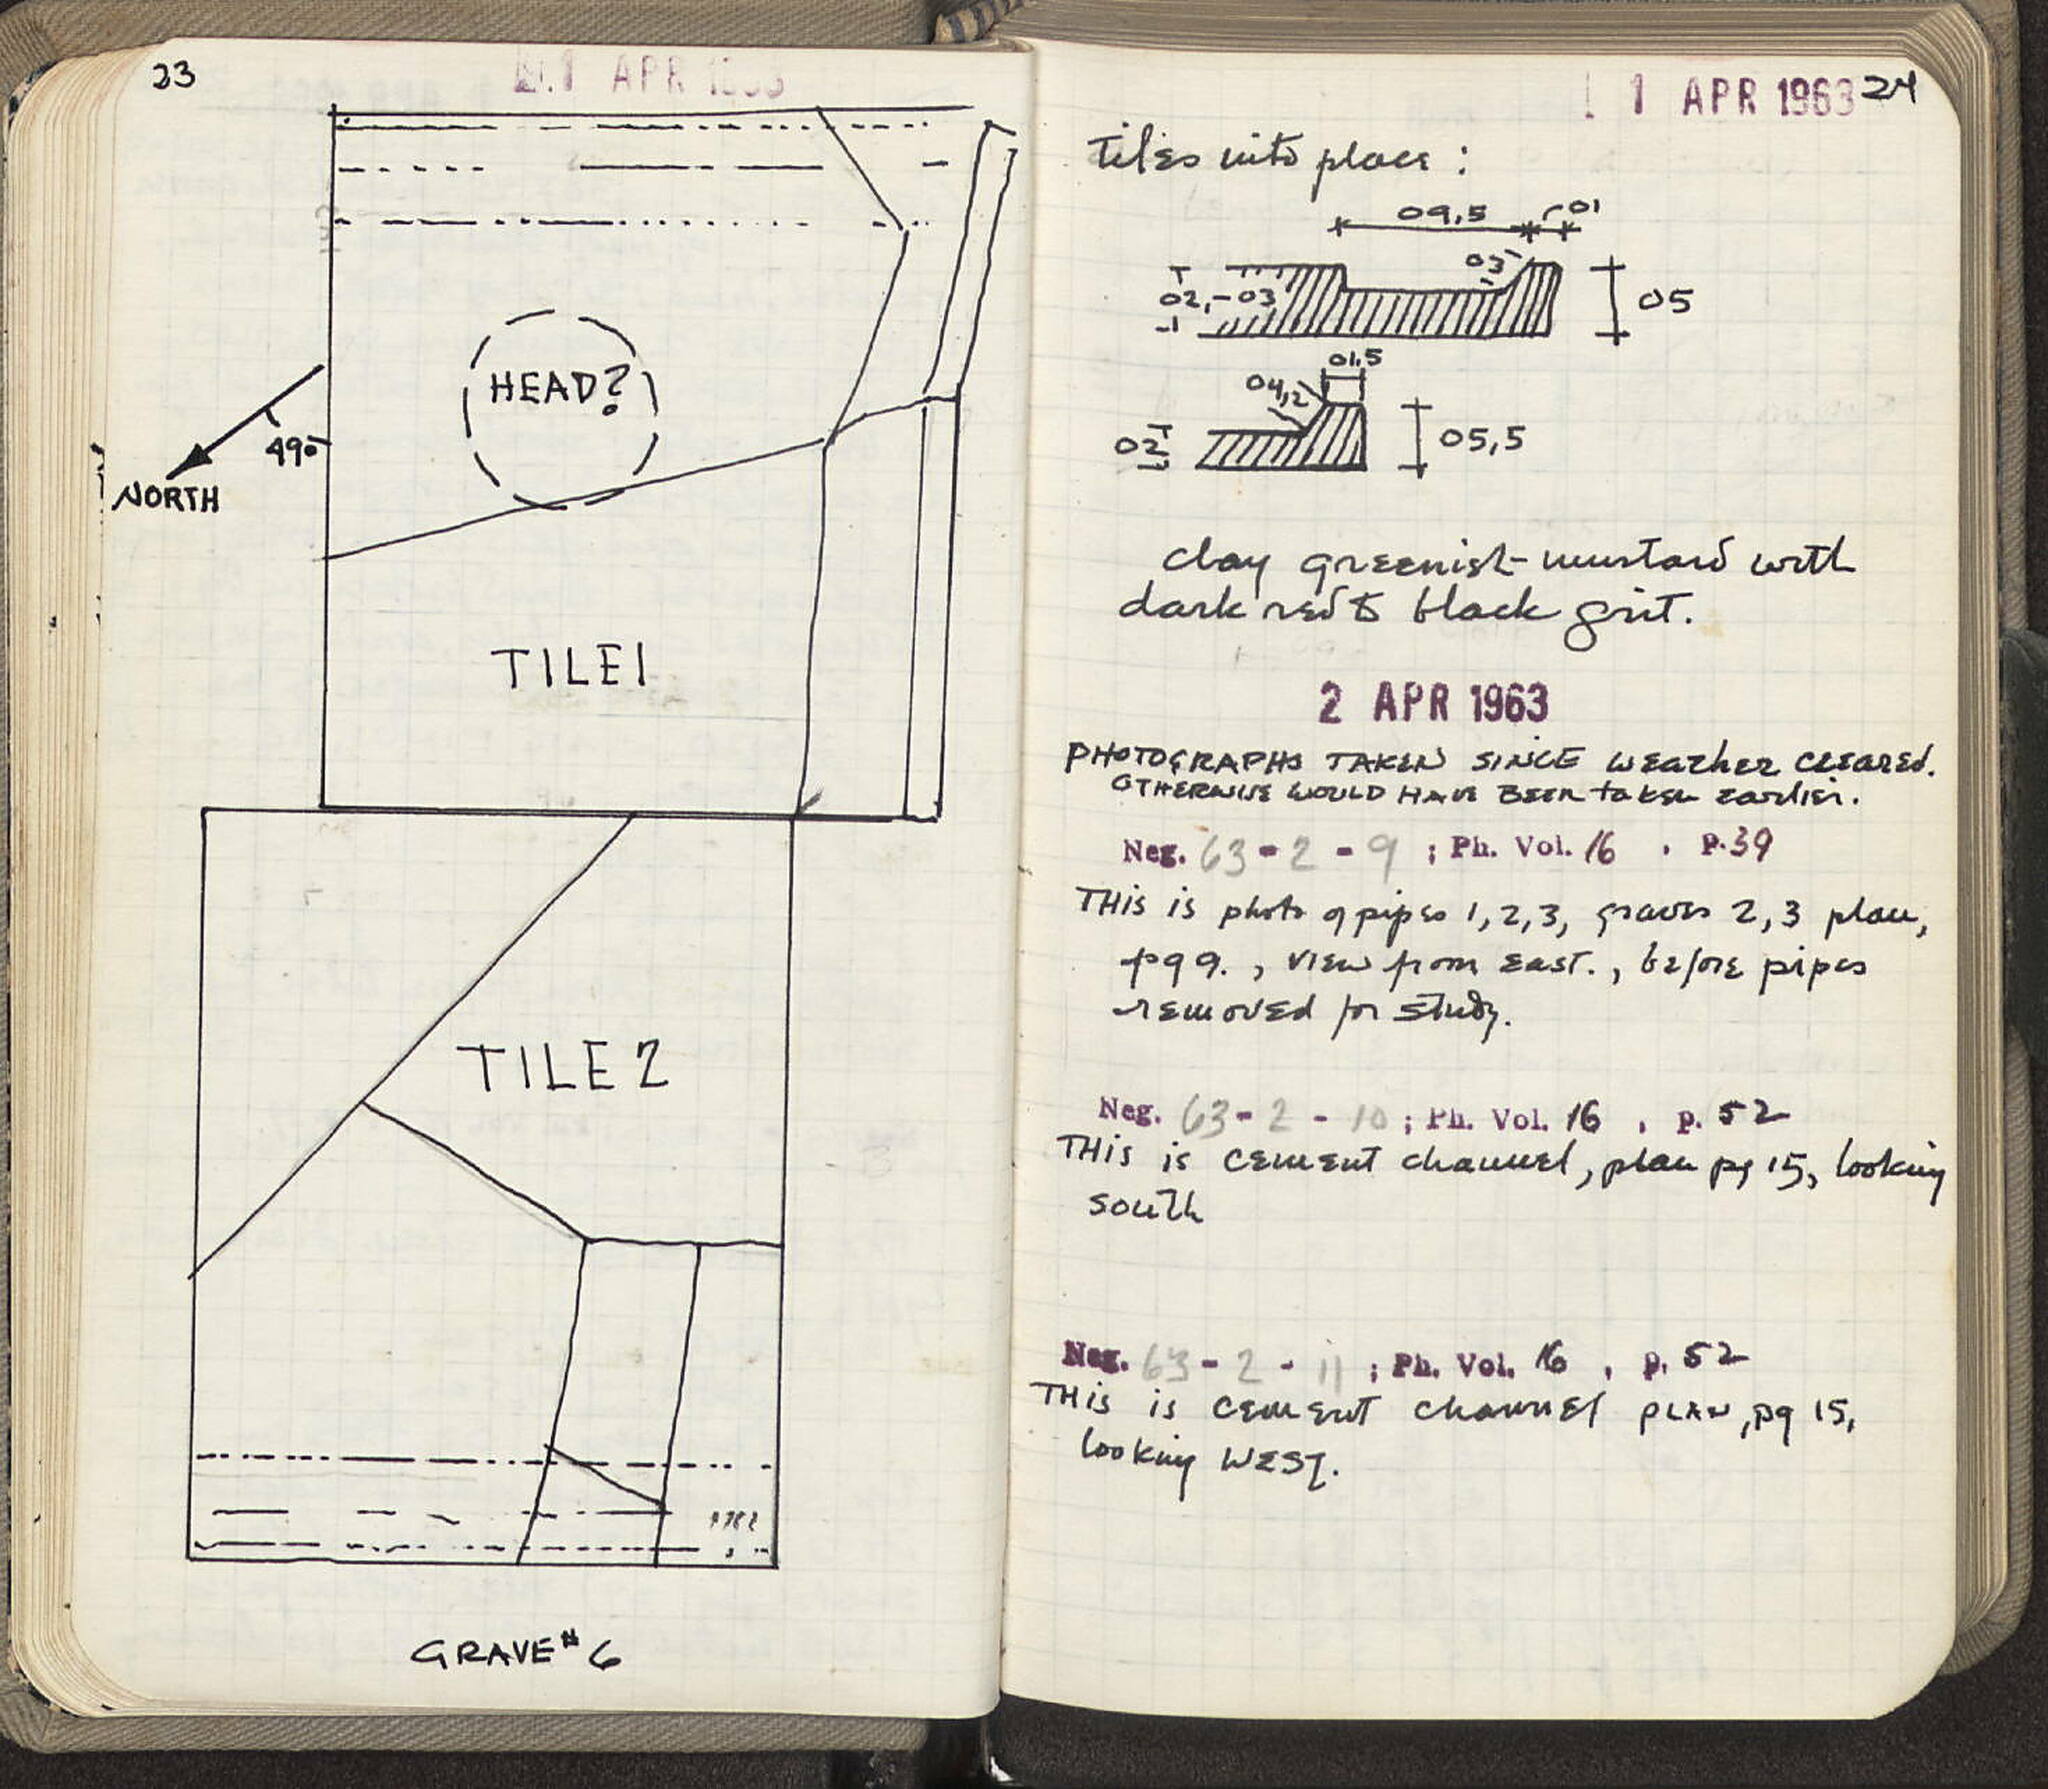 23
1 APR 1963
HEAD?
49°
NORTH
TILE 1
TILE 2
GRAVE # 6
1 APR 1963 24
tiles into place :
09,5 01
03
02,-03 05
01,5
04,2
02 05,5
clay greenish-mustard with
dark red & black grit.
2 APR 1963
PHOTOGRAPHS TAKEN SINCE weather cleared.
OTHERWISE WOULD HAVE BEEN taken earlier.
Neg. 63-2-9 ; Ph. Vol. 16 , p.39
THis is photo of pipes 1,2,3, graves 2,3 plan,
pg 9. , view from east. , before pipes
removed for study.
Neg. 63-2-10 ; Ph. Vol. 16 , p. 52
THis is cement channel, plan pg 15, looking
south
Neg. 63-2-11 ; Ph. Vol. 16 , p. 52
THis is cement channel PLAN, pg 15,
looking WEST.